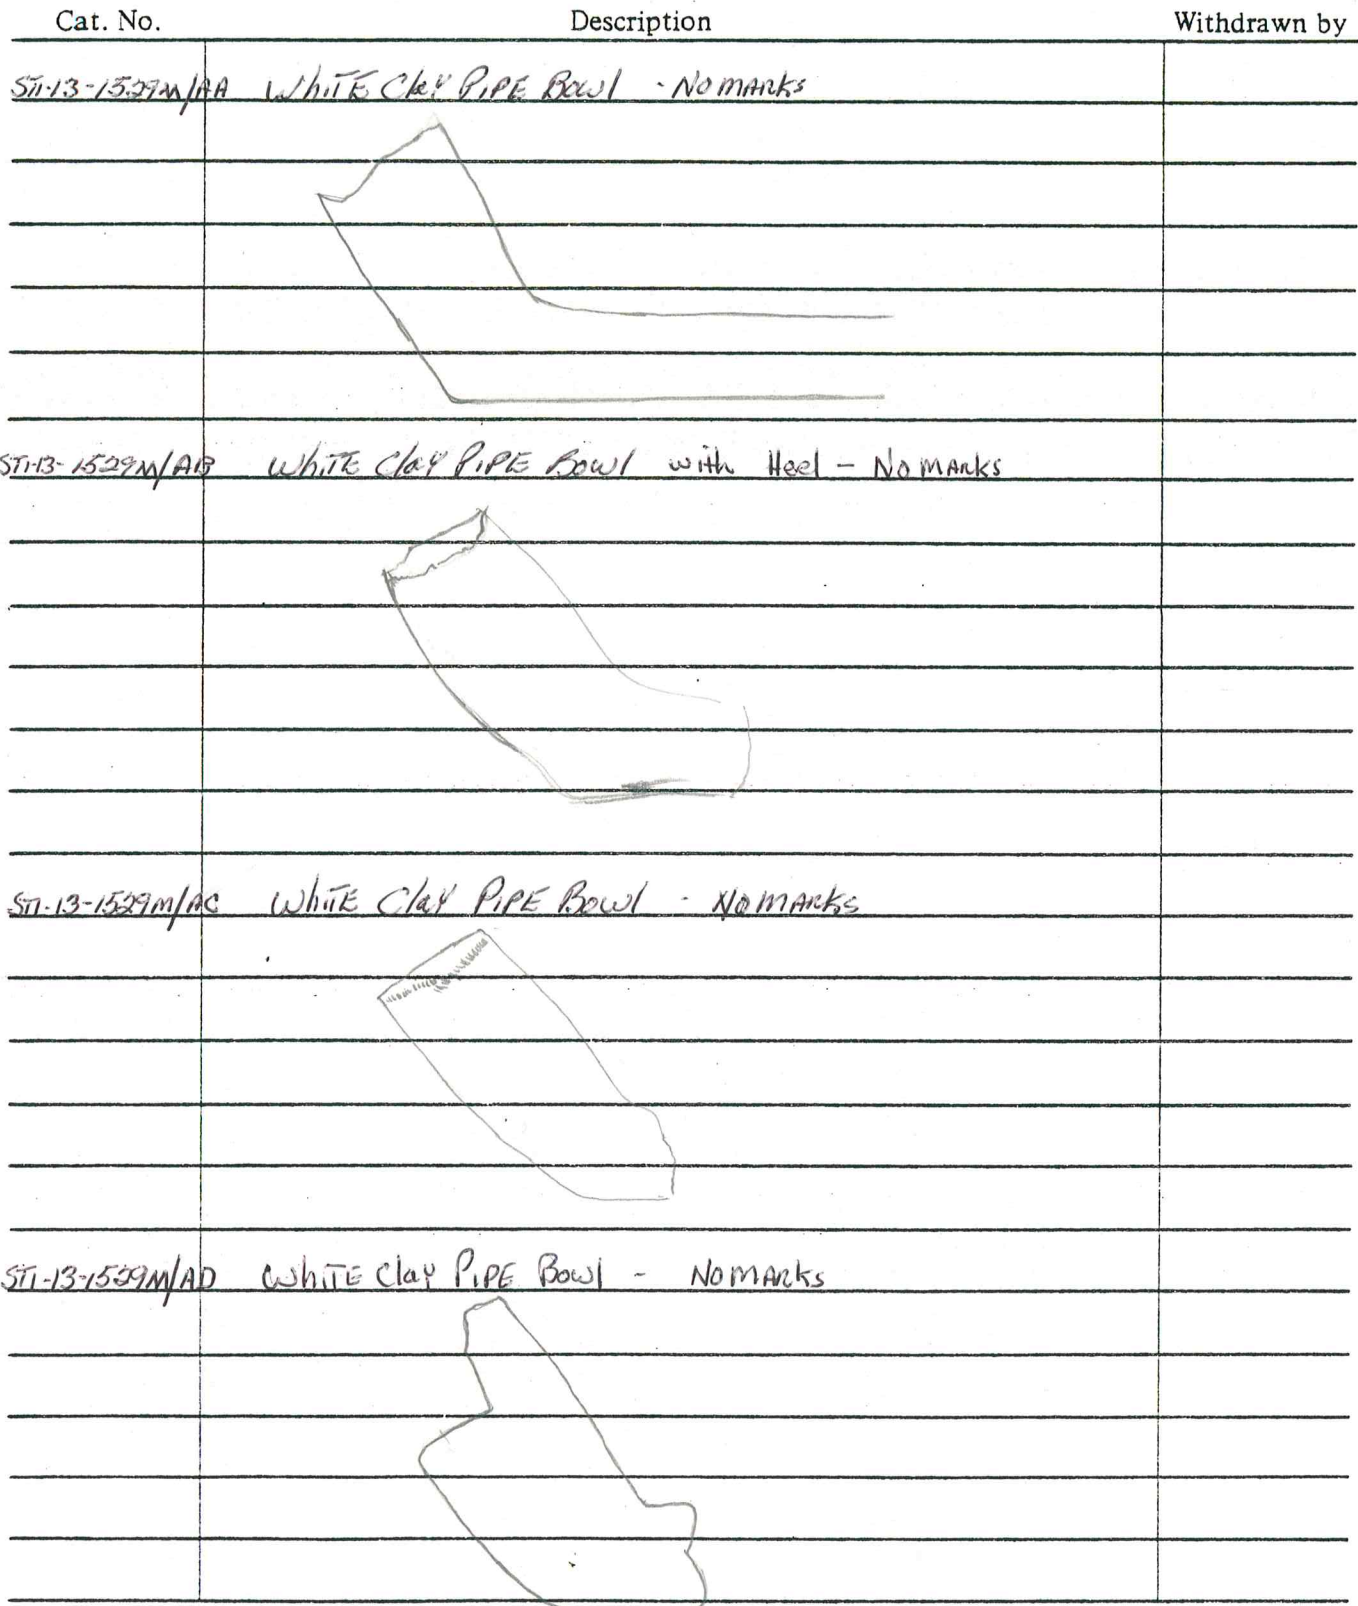 Cat. No. Description Withdrawn by
ST1-13-1529M/AA White Clay Pipe Bowl - No marks
ST1-13-1529M/AB White Clay Pipe Bowl with Heel - No marks
ST1-13-1529M/AC White Clay Pipe Bowl - No marks
ST1-13-1529M/AD White Clay Pipe Bowl - No marks